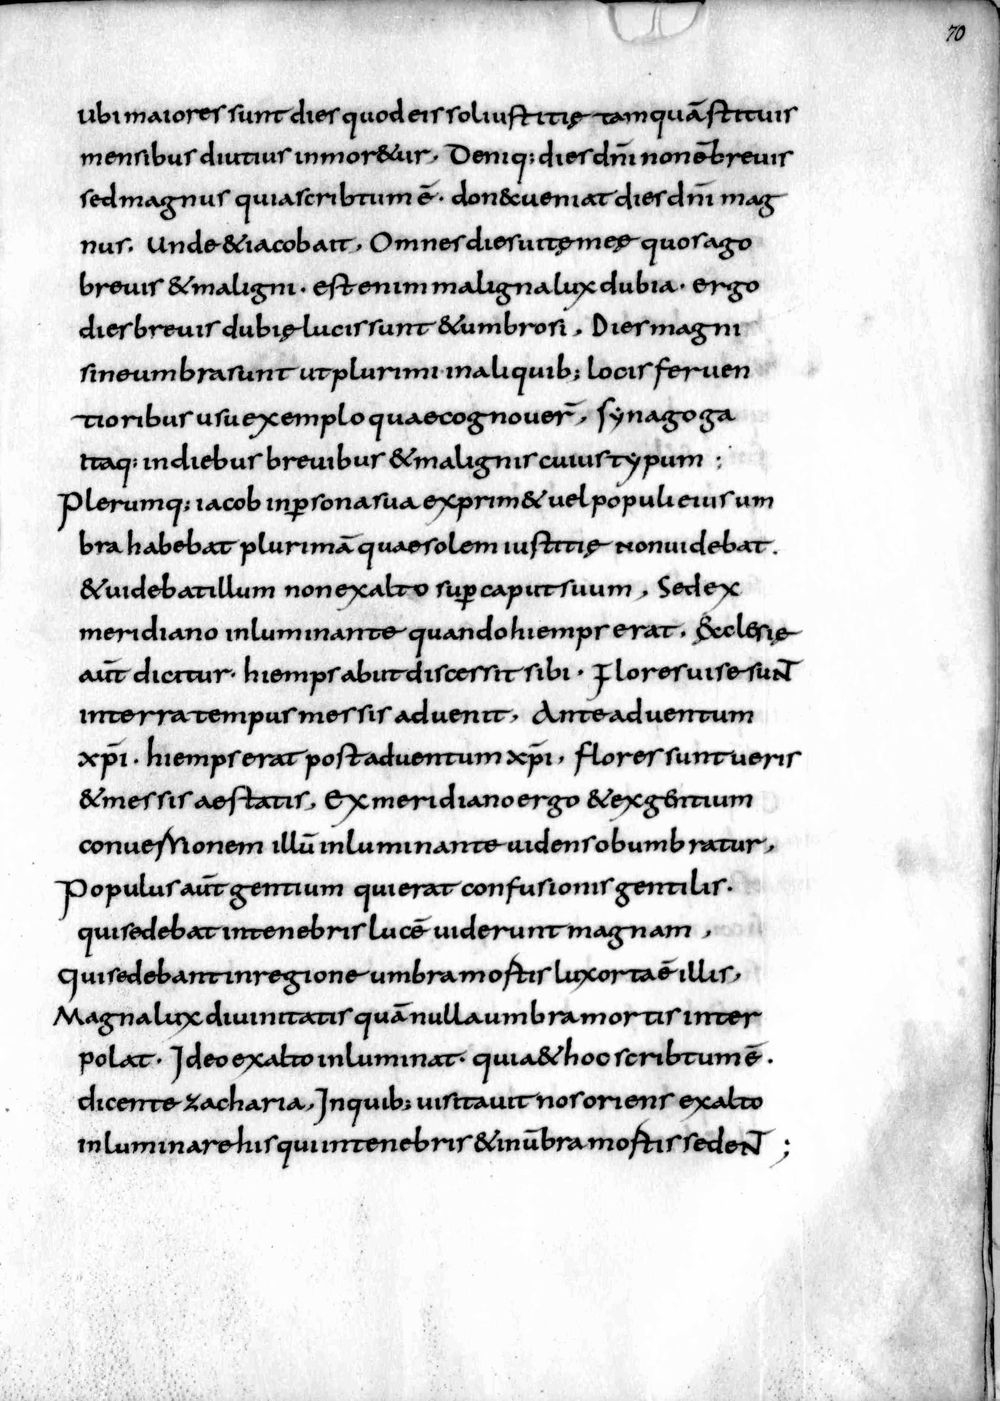 70
ubi maiores sunt dies quod eis sol iustitię tamquā stituis
mensibus diutius inmor&ur, Deniq; dies dn̄i non ē brevis
sed magnus quia scribtum ē. don&cueniat dies dn̄i mag
nus. Unde & iacob ait, Omnes dies uitę meę quos ago
breuis & maligni. est enim maligna lux dubia. ergo
dies breuis dubię lucis sunt & umbrosi, Dies magni
sine umbra sunt ut plurimi in aliquib; locis feruen
tioribus usu exemplo quae cognouer̄, synagoga
Itaq; in diebus brevibus & malignis cuius typum ;
Plerumq; iacob inp̱sona sua exprim& uel populi eius um
bra habebat plurimā quae solem iustitię non uidebat.
& uidebat illum non ex alto sup̱ caput suum, Sed ex
meridiano inluminante quando hiemps erat, ęcclesię
aut̄ dicitur. hiemps abut discessit sibi. Flores uise suNT
in terra tempus messis aduenit, Ante aduentum
xp̄i. hiemps erat post aduentum xp̄i, flores sunt ueris
& messis aestatis, Ex meridiano ergo & ex gentium
conuersionem illū inluminante uidens obumbratur,
Populus aut̄ gentium qui erat confusionis gentilis.
qui sedebat in tenebris lucē uiderunt magnam,
Qui sedebant in regione umbra mortis lux orta ē illis,
Magna lux diuinitatis quā nulla umbra mortis inter
polat. Ideo ex alto inluminat. quia & hoc scribtum ē.
dicente zacharia, Inquib; uisitauit nos oriens ex alto
inluminare his qui in tenebris & in ūbra mortis sedeNT ;